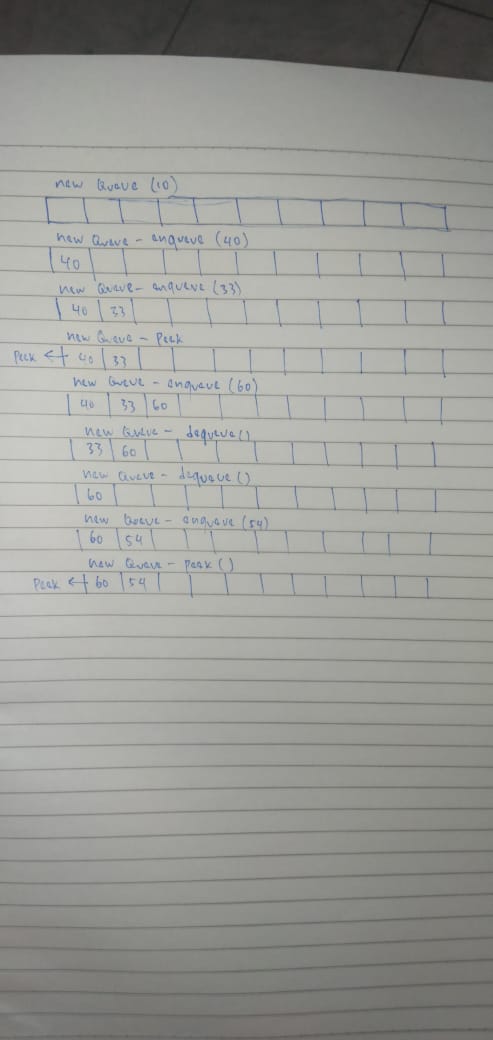 new Queue (10)
new Queue - enqueue (40)
40
new Queue - enqueue (33)
40 33
new Queue - Peek
Peek ← 40 33
new Queue - enqueue (60)
40 33 60
new Queue - dequeue ()
33 60
new Queue - dequeue ()
60
new Queue - enqueue (54)
60 54
new Queue - peek ()
Peek ← 60 54